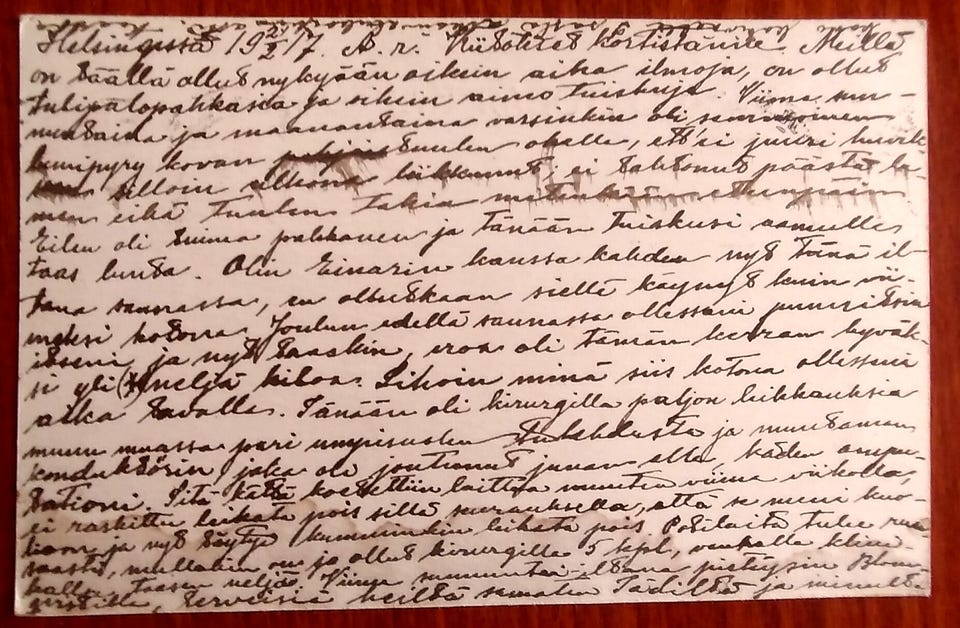 Helsingissä 19 21/2 17. A. r. Kiitokset kortistänne. Meillä
on täällä ollut nykyään oikein aika ilmoja, on ollut
tulipalopakkasia ja oikein aimo tuiskuja. Viime sun-
nuntaina ja maanantaina varsinkin oli
lumipyry kovan tuulen ohella, ett'ei juuri
silloin ulkona liikkunut, ei tahtonut päästä
eikä tuulen takia eteenpäin.
Eilen oli kuiva pakkanen ja tänään tuiskusi aamulla
taas lunta. Olin Einarin kanssa kahden nyt tänä il-
tana saunassa, en ollutkaan siellä käynyt kuin vii-
meksi kotona. Joulun edellä saunassa ollessani punnitsin
itseni ja nyt taaskin, eroa oli tämän kerran hyväk-
si yli neljä kiloa. Lihoin minä siis kotona ollessani
aika tavalla. Tänään oli kirurgilla paljon leikkauksia
muun muassa pari umpisuolen tulehdusta ja muutaman
konduktöörin, joka oli joutunut junan alle, käden ampu-
tationi. Sitä kättä koetettiin laittaa muuten viime viikolla,
ei raskittu leikata pois sillä seurauksella, että se meni kuo-
lioon ja nyt täytyi kumminkin leikata pois. Potilaita tulee
, mullakin on jo ollut kirurgilla 5 kpl, vanhalla
taasen neljä. Viime sunnuntai-iltana pistäysin Blom-
, terveisiä heiltä samaten Tädiltä ja minulta